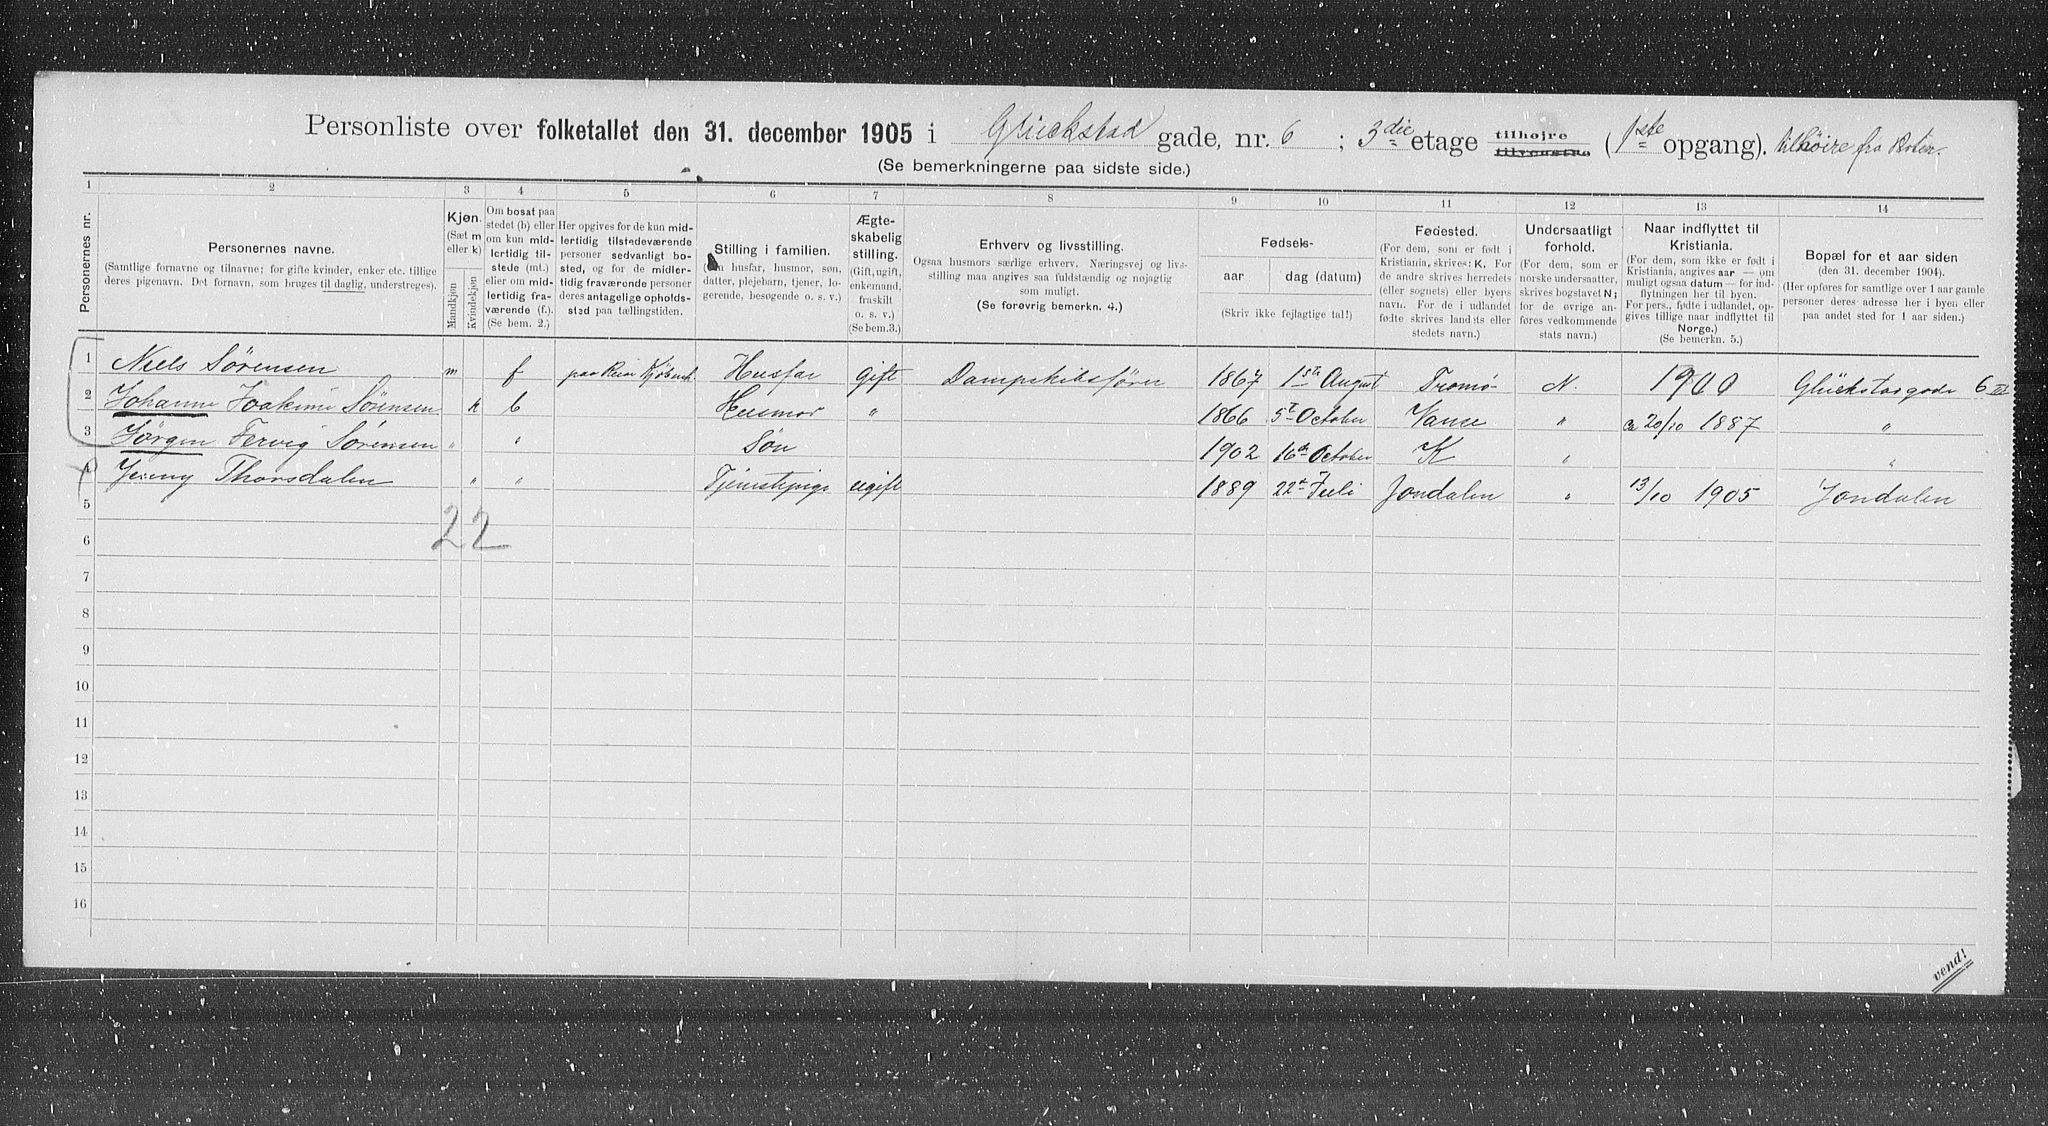 Personliste over folketallet den 31. december 1905 i Glückstad gade, nr. 6 ; 3die etage tilhøjre tilvenstre (1ste opgang). tilhøire fra
(Se bemerkningerne paa sidste side.)
1 2 3 4 5 6 7 8 9 10 11 12 13 14
Personernes nr.
Personernes navne.
(Samtlige fornavne og tilnavne; for gifte kvinder, enker etc. tillige
deres pigenavn. Det fornavn, som bruges til daglig, understreges).
Kjøn.
(Sæt m
eller k)
Mandkjøn
Kvindekjøn
Om bosat paa
stedet (b) eller
om kun mid-
lertidig til-
stede (mt.)
eller om mid-
lertidig fra-
værende (f.).
(Se bem. 2.)
Her opgives for de kun mid-
lertidig tilstedeværende
personer sedvanligt bo-
sted, og for de midler-
tidig fraværende personer
deres antagelige opholds-
sted paa tællingstiden.
Stilling i familien.
(Om husfar, husmor, søn,
datter, plejebarn, tjener, lo-
gerende, besøgende o. s. v.)
Ægte-
skabelig
stilling.
(Gift, ugift,
enkemand,
fraskilt
o. s. v.)
(Se bem.3.)
Erhverv og livsstilling.
Ogsaa husmors særlige erhverv. Næringsvej og livs-
stilling maa angives saa fuldstændig og nøjagtig
som muligt.
(Se forøvrig bemerkn. 4.)
Fødsels-
aar
dag (datum)
(Skriv ikke fejlagtige tal!)
Fødested.
(For dem, som er født i
Kristiania, skrives: K. For
de andre skrives herredets
(eller sognets) eller byens
navn. For de i udlandet
fødte skrives landets eller
stedets navn.)
Undersaatligt
forhold.
(For dem, som er
norske undersaatter,
skrives bogstavet N;
for de øvrige an-
føres vedkommende
stats navn.)
Naar indflyttet til
Kristiania.
(For dem, som ikke er født i
Kristiania, angives aar — om
muligt ogsaa datum — for ind-
flytningen her til byen.
For pers., fødte i udlandet, op-
gives tillige naar indflyttet til
Norge.)
(Se bemerkn. 5.)
Bopæl for et aar siden
(den 31. december 1904).
(Her opføres for samtlige over 1 aar gamle
personer deres adresse her i byen eller
paa andet sted for 1 aar siden.)
1 Niels Sørensen m f paa Reise Kjøbenh Husfar gift Dampskibsfører 1867 1ste August Tromø N. 1900 Glückstadgade 6 III
2 Johanne Joakime Sørensen k b Husmor " 1866 5te October Vanse " ca 20/10 1887 "
3 Jörgen Fervig Sörensen " " Søn 1902 16de October K " "
4 Jenny Thorsdalen " " Tjenestepige ugift 1889 22de Juli Jondalen " 13/10 1905 Jondalen
5
22
6
7
8
9
10
11
12
13
14
15
16
vend!